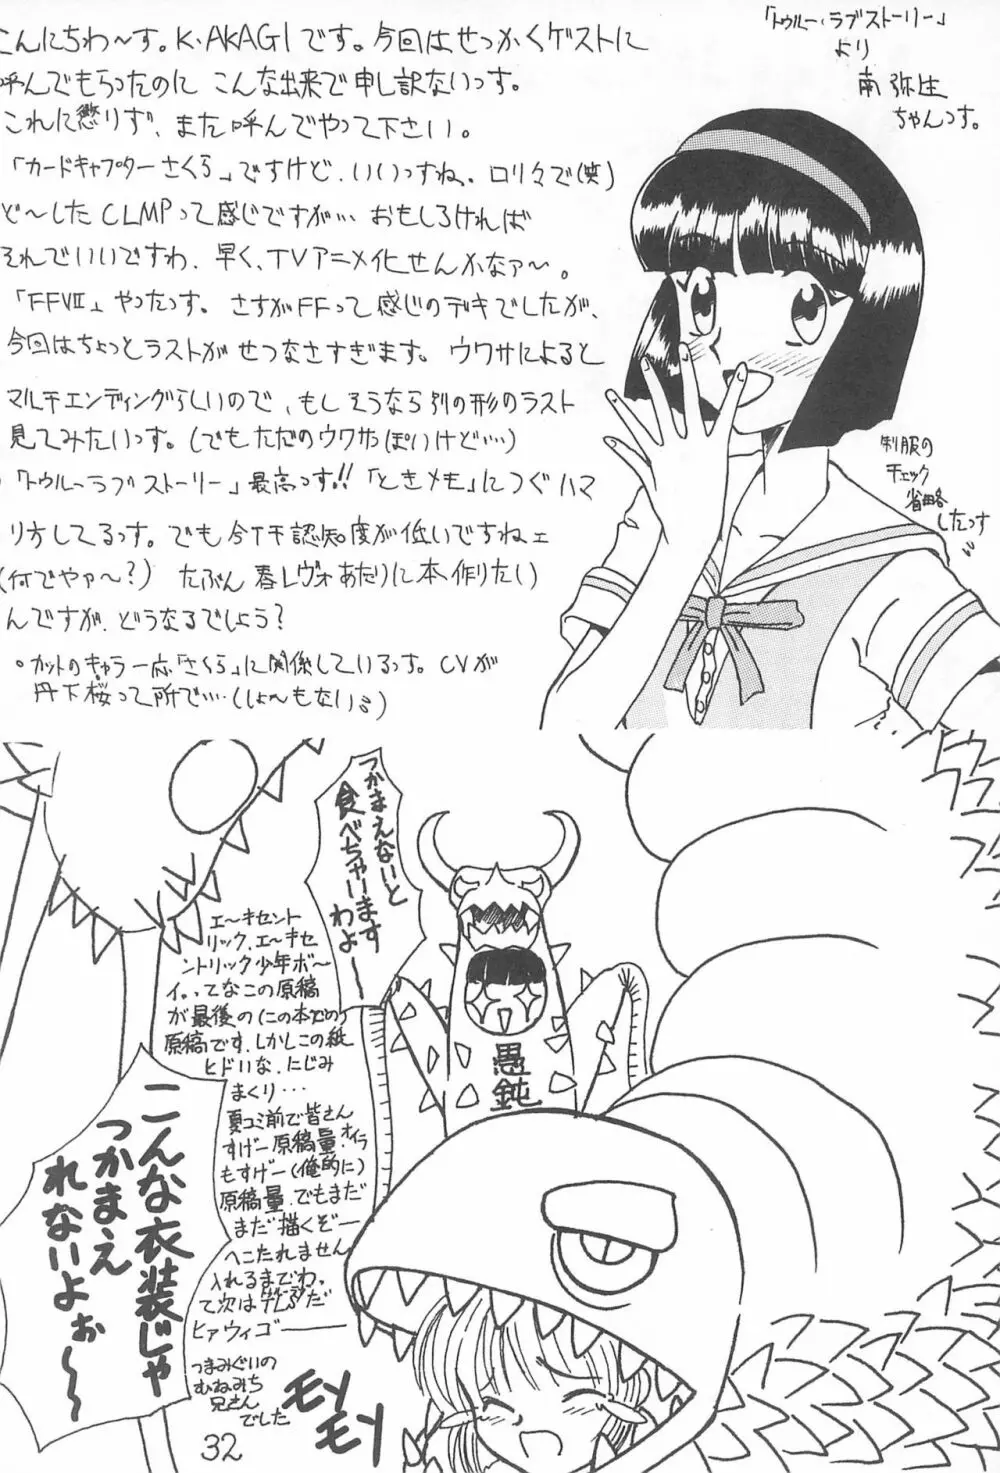 こんにちわ〜す。K・AKAGIです。今回はせっかくゲストに
呼んでもらったのに こんな出来で申し訳ないっす。
これに懲りず、また呼んでやって下さい。
「カードキャプターさくら」ですけど、いいっすね、ロリ々で(笑)
ど〜したCLMPって感じですが… おもしろければ
それでいいですわ、早く、TVアニメ化せんかなァ〜。
「FFVII」やったっす。さすがFFって感じのデキでしたが、
今回はちょっとラストがせつなさすぎます。ウワサによると
マルチエンディングらしいので、もしそうなら別の形のラスト
見てみたいっす。(でもただのウワサっぽいけど…)
「トゥルーラブストーリー」最高っす!!「ときメモ」につぐハマ
リ方してるっす。でも今イチ認知度が低いですねェ
(何でやァ〜?) たぶん春レヴォあたりに本作りたい
んですが、どうなるでしょう?
。カットのキャラ一応「さくら」に関係しているっす。CVが
丹下桜って所で…(しょ〜もない)
「トゥルー・ラブストーリー」
より
南弥生
ちゃんっす。
制服の
チェック
省略
したっす
つかまえないと
食べちゃいます
わよ〜
愚鈍
エ〜キセント
リック、エ〜キセ
ントリック少年ボ〜
イ。ってなこの原稿
が最後の(この本での)
原稿です、しかしこの紙
ヒドいな、にじみ
まくり…
夏コミ前で皆さん
すげー原稿量、オイラ
もすげー(俺的に)
原稿量、でもまだ
まだ描くぞー
へこたれません
入れるまでわ、
て次はデぶだ
ヒアウィゴー
つまみぐいの
むねみち
兄さん
でした
こんな衣装じゃ
つかまえ
れないよぉ〜
モソ
モソ
32